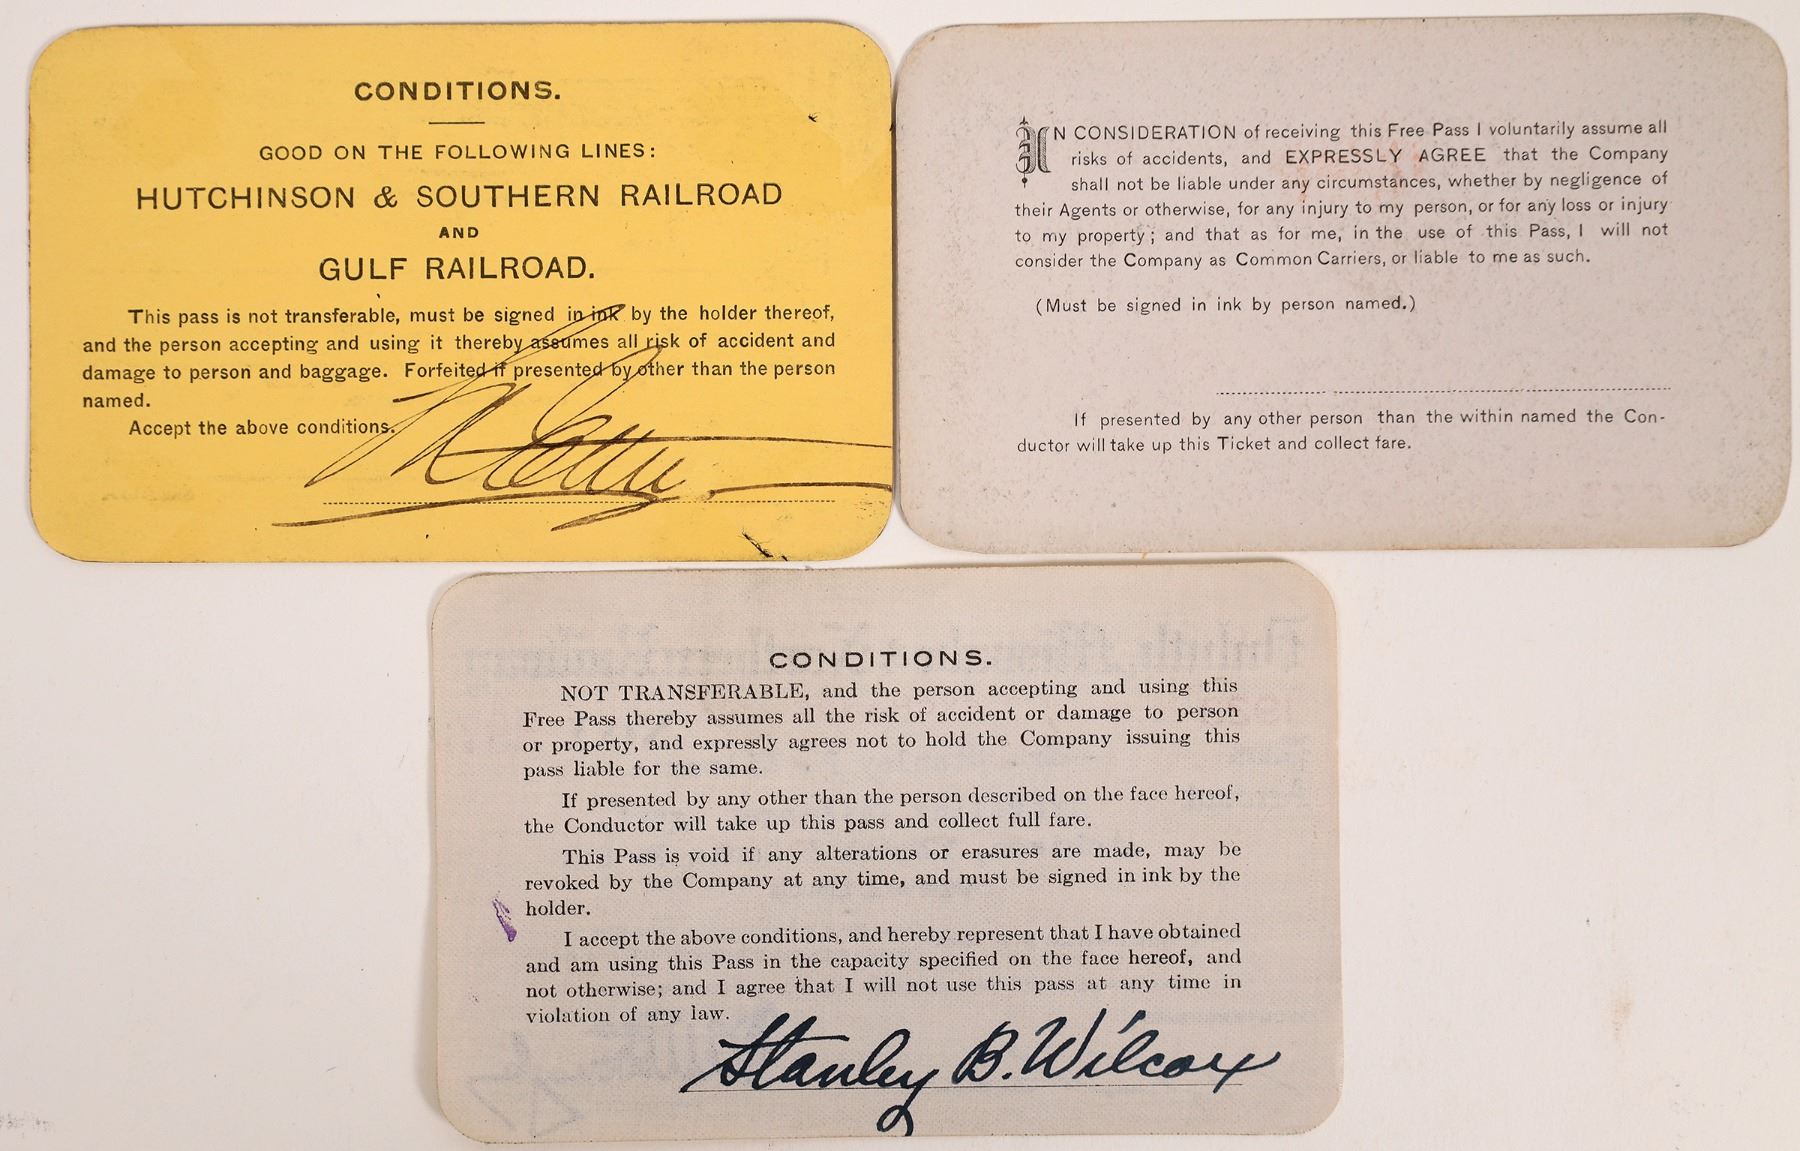 CONDITIONS.
GOOD ON THE FOLLOWING LINES:
HUTCHINSON & SOUTHERN RAILROAD
AND
GULF RAILROAD.
This pass is not transferable, must be signed in ink by the holder thereof,
and the person accepting and using it thereby assumes all risk of accident and
damage to person and baggage. Forfeited if presented by other than the person
named.
Accept the above conditions.
IN CONSIDERATION of receiving this Free Pass I voluntarily assume all
risks of accidents, and EXPRESSLY AGREE that the Company
shall not be liable under any circumstances, whether by negligence of
their Agents or otherwise, for any injury to my person, or for any loss or injury
to my property; and that as for me, in the use of this Pass, I will not
consider the Company as Common Carriers, or liable to me as such.
(Must be signed in ink by person named.)
If presented by any other person than the within named the Con-
ductor will take up this Ticket and collect fare.
CONDITIONS.
NOT TRANSFERABLE, and the person accepting and using this
Free Pass thereby assumes all the risk of accident or damage to person
or property, and expressly agrees not to hold the Company issuing this
pass liable for the same.
If presented by any other than the person described on the face hereof,
the Conductor will take up this pass and collect full fare.
This Pass is void if any alterations or erasures are made, may be
revoked by the Company at any time, and must be signed in ink by the
holder.
I accept the above conditions, and hereby represent that I have obtained
and am using this Pass in the capacity specified on the face hereof, and
not otherwise; and I agree that I will not use this pass at any time in
violation of any law.
Stanley B. Wilcox